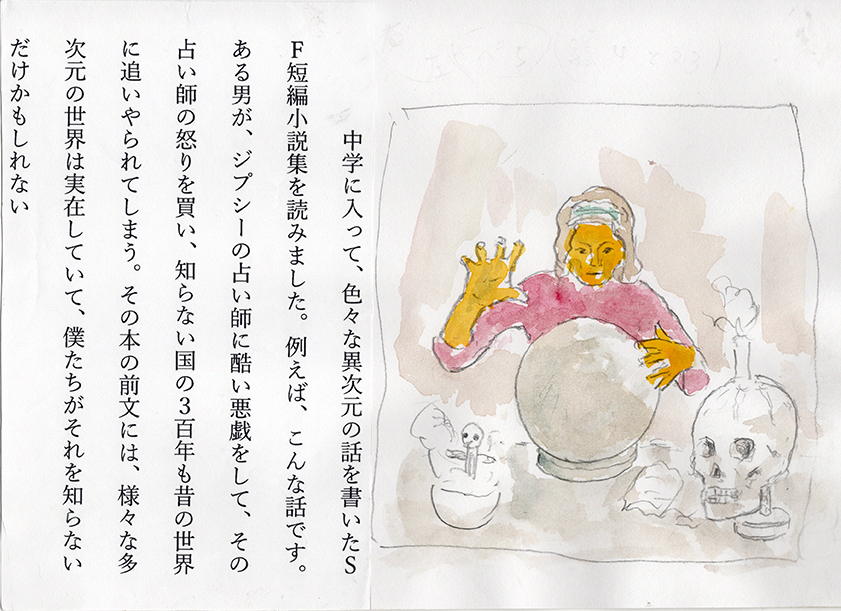 中学に入って、色々な異次元の話を書いたS
F短編小説集を読みました。例えば、こんな話です。
ある男が、ジプシーの占い師に酷い悪戯をして、その
占い師の怒りを買い、知らない国の3百年も昔の世界
に追いやられてしまう。その本の前文には、様々な多
次元の世界は実在していて、僕たちがそれを知らない
だけかもしれない